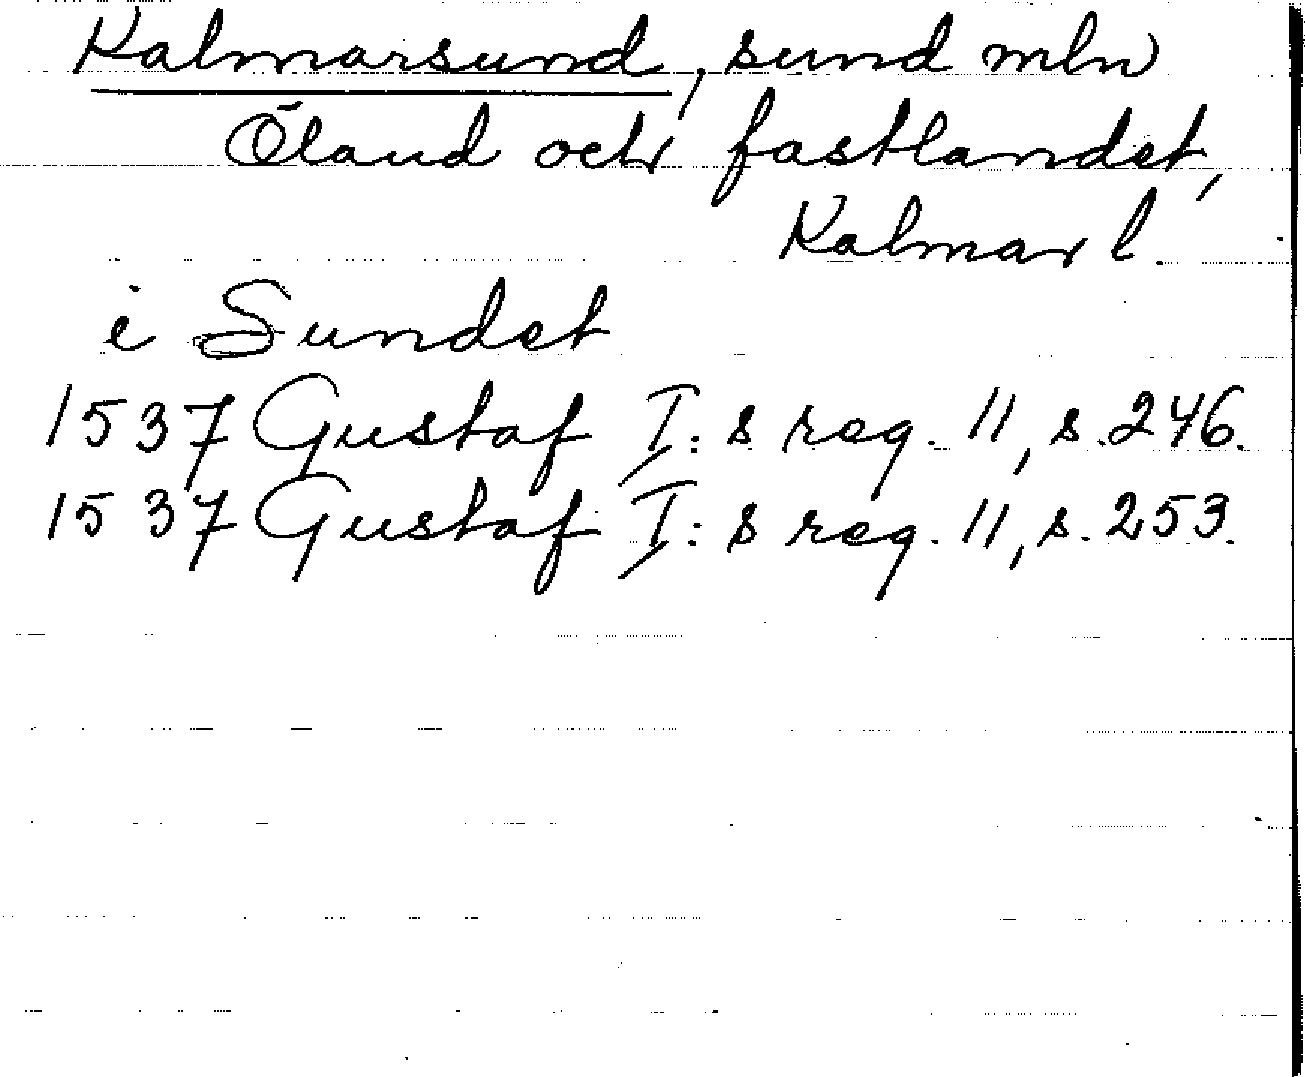 Kalmarsund, sund mln
Öland och fastlandet,
Kalmar l.
i Sundet
1537 Gustaf I:s reg. 11, s. 246.
1537 Gustaf I:s reg. 11, s. 253.